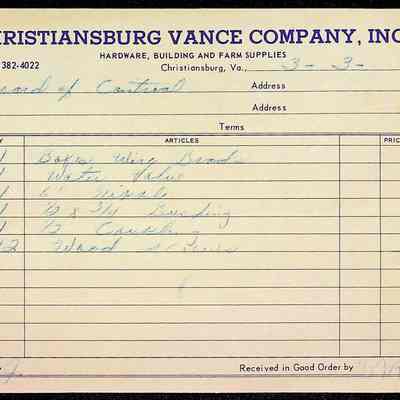 HRISTIANSBURG VANCE COMPANY, INC
HARDWARE, BUILDING AND FARM SUPPLIES
382-4022 Christiansburg, Va., 3-3-
Board of Control Address
Address
Terms
Y ARTICLES PRIC
1 Box Wing Brads
1 Water Valve
1 6"
1 ½ x 3/4 Bushing
1 ½
2 Wood Screws
Received in Good Order by